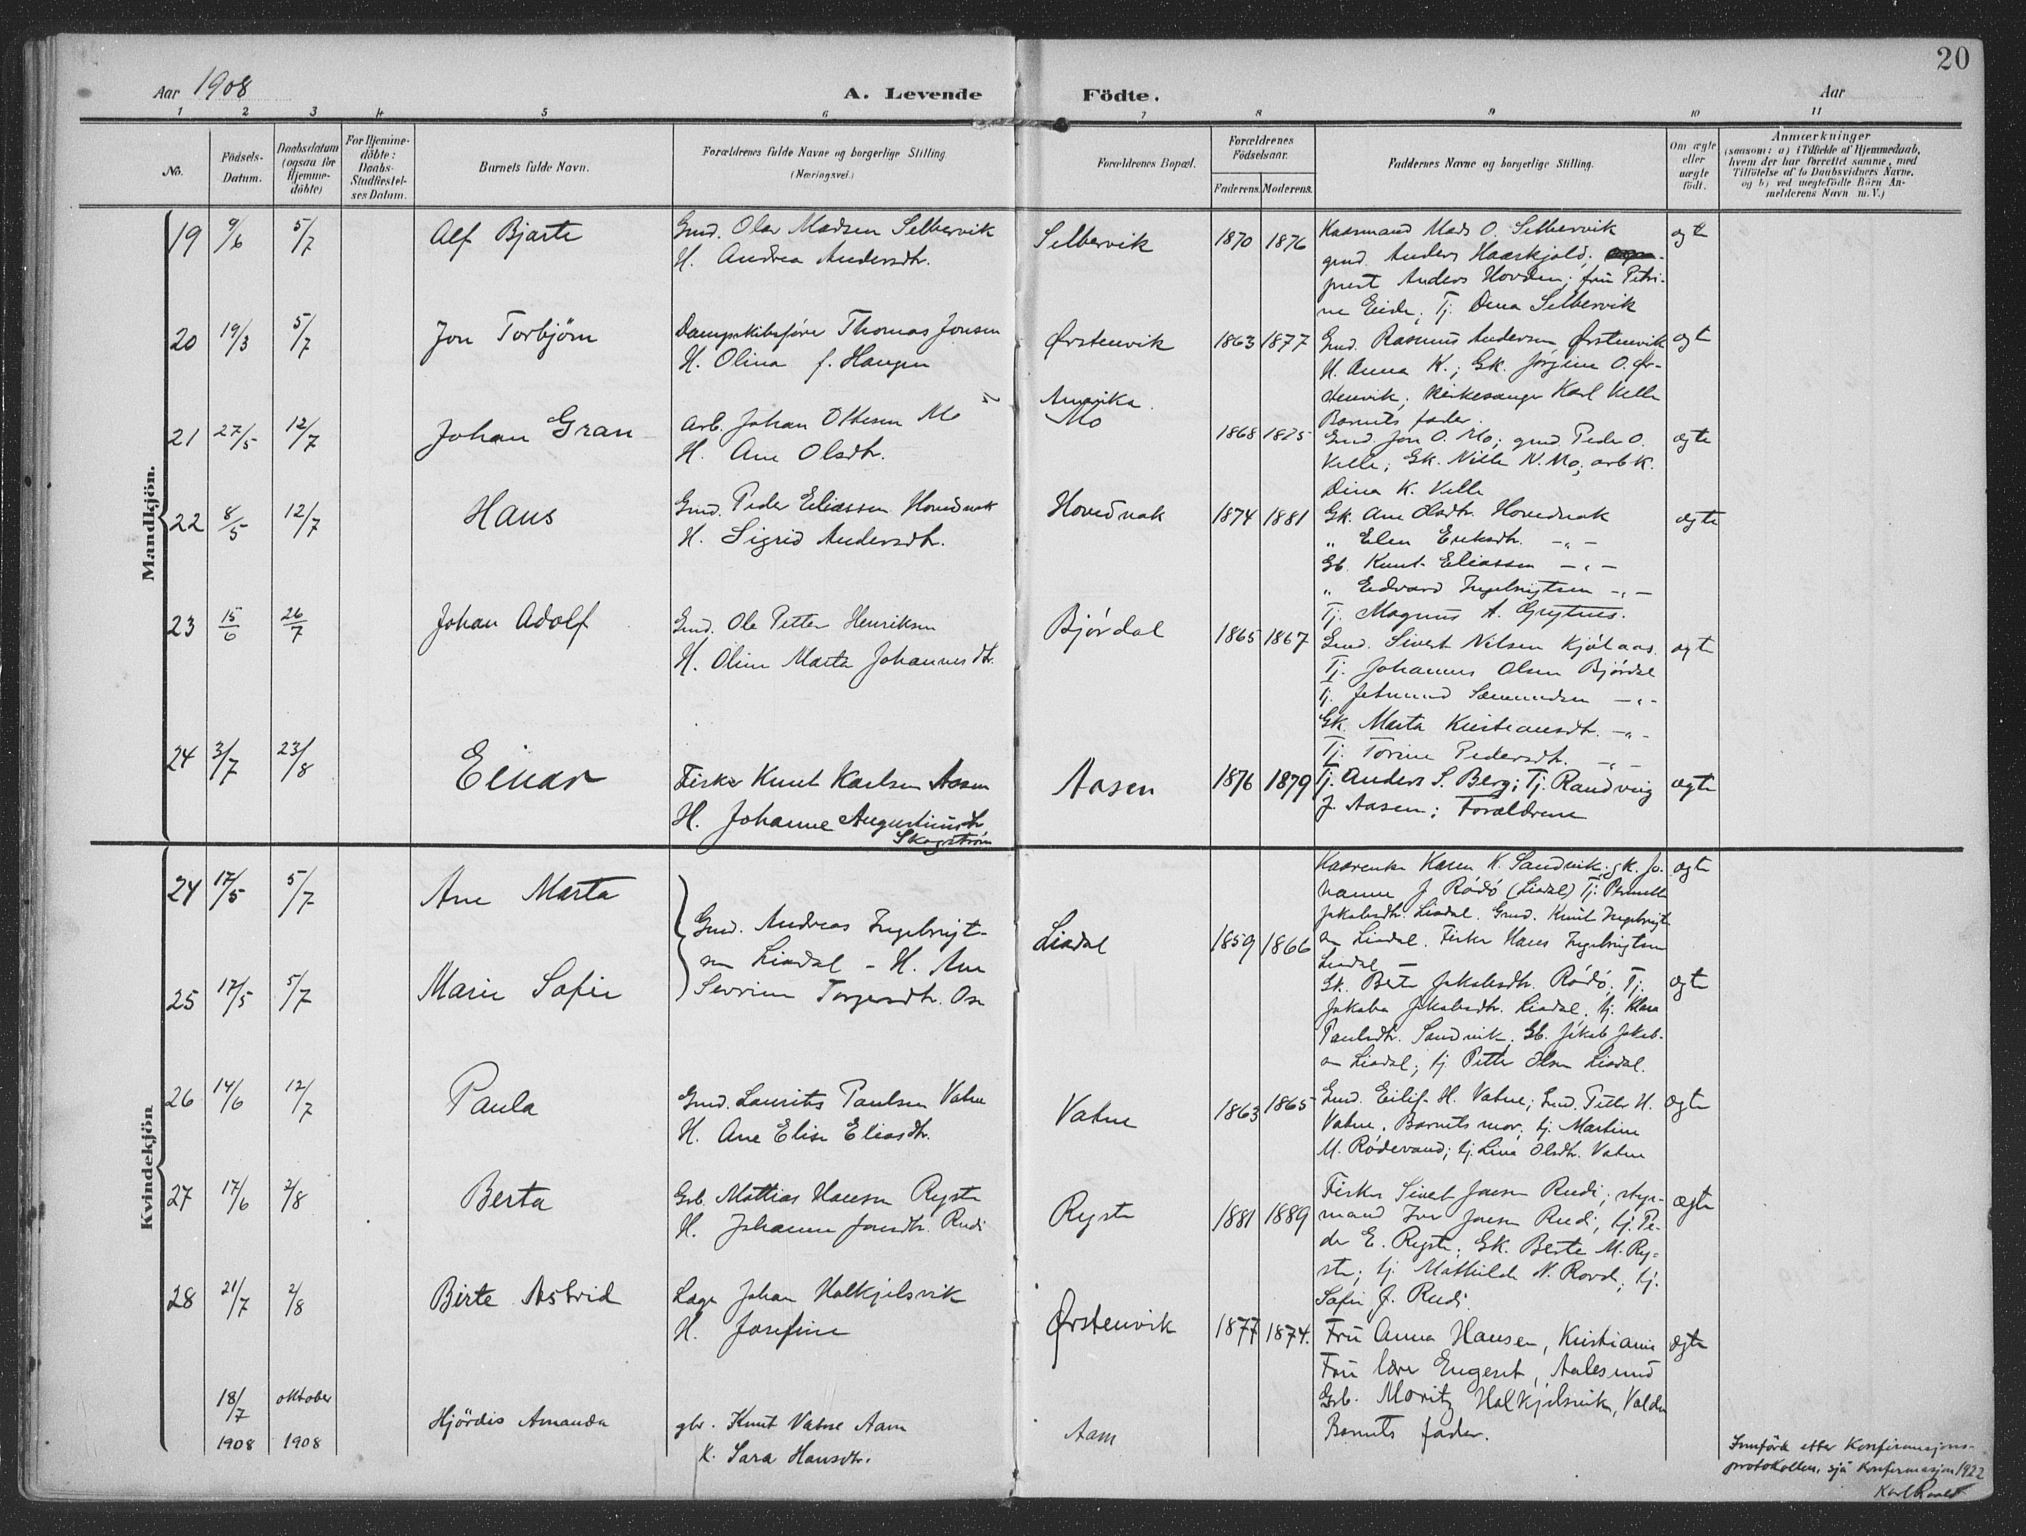 20
Aar 1908
A. Levende Födte.
Aar
1 2 3 4 5 6 7 8 9 10 11
No.
Födsels-Datum.
Daabsdatum (ogsaa for Hjemme-döbte)
For Hjemme-döbte: Daabs-Stadfæstel-ses Datum.
Barnets fulde Navn.
Forældrenes fulde Navne og borgerlige Stilling
(Næringsvei.)
Forældrenes Bopæl.
Forældrenes Födselsaar.
Faderens. Moderens.
Faddernes Navne og borgerlige Stilling.
Om ægte eller uægte födt.
Anmærkninger
(saasom: a) i Tilfælde af Hjemmedaab, hvem der har forrettet samme, med Tilföielse af to Daabsvidners Navne. og b) ved uægtefödte Börn An-melderens Navn m. V.)
Mandkjön.
19 9/6 5/7 Alf Bjarte
Gmd. Olav Madsen Selbervik
H. Andrea Andersdtr.
Selbervik 1870 1876
Kaarmand Mads O. Selbervik
gmd. Anders Haarkjold;
prest Anders Hovden; fru Petri-
ne Eide; Tj. Dina Selbervik
ægte
20 19/3 5/7 Jon Torbjørn
Dampskibsfører Thomas Jonsen
H. Olina f. Haugen
Ørstenvik 1863 1877
Gmd. Rasmus Andersen Ørstenvik
H. Anna K.; Gk. Jørgine O. Ør-
stenvik; Kirkesanger Karl Velle
Barnets fader.
ægte
21 27/5 12/7 Johan Gran
Arb. Johan Ottesen Mo
H. Ane Olsdtr.
Amerika.
Mo 1868 1875
Gmd. Jon O. Mo; gmd. Peder O.
Velle; Gk. Nille N. Mo; arbk.
Dina K. Velle
ægte
22 8/5 12/7 Hans
Gmd. Peder Eliassen Hovdenak
H. Sigrid Andersdtr.
Hovednak 1874 1881
Gk. Ane Olsdtr. Hovednak
" Elen Eriksdtr. -"-
Gb. Knut Eliassen -"-
" Edvard Ingebrigtsen -"-
Tj. Magnus A. Grytnes.
ægte
23 15/6 26/7 Johan Adolf
Gmd. Ole Petter Henriksen
H. Oline Marta Johannesdtr.
Bjørdal 1865 1867
Gmd. Sivert Nilsen Kjølaas.
Tj. Johannes Olsen Bjørdal
Tj. Jetmund Sæmundsen -"-
Gk. Marta Kristiansdtr. -"-
Tj. Torine Pedersdtr. -"-
ægte
24 3/7 23/8 Einar
Fisker Knut Karlsen Aasen
H. Johanne Augustinusdtr
Skogstrøm
Aasen 1876 1879
Tj. Anders S. Berg; Tj. Randveig
J. Aasen; Forældrene
ægte
Kvindekjön
24 17/5 5/7 Ane Marta
Gmd. Andreas Ingebrigt-
sen Liadal - H. Ane
Severine Torgersdtr. Ose
Liadal 1859 1866
Kaarenke Karen K. Sandvik; gk. Jo-
hanne J. Rødø (Liadal) Tj. Pernille
Jakobsdtr. Liadal. Gmd. Knut Ingebrigt
sen Liadal. Fisker Hans Ingebrigtsen
Liadal -
ægte
25 17/5 5/7 Marie Sofie
Gk. Berte Jakobsdtr. Rødø; Tj.
Jakoba Jakobsdtr. Liadal; tj. Klara
Paulsdtr. Sandvik; Gb. Jakob Jakob-
sen Liadal; tj Petter Olsen Liadal.
ægte
26 14/6 12/7 Paula
Gmd. Laurits Paulsen Vatne
H. Ane Elise Eliasdtr.
Vatne 1863 1865
Gmd. Eilif H. Vatne; Gmd. Petter H.
Vatne, Barnets mor; tj. Martine
M. Rødevand; tj. Lina Olsdtr. Vatne
ægte
27 17/6 2/8 Berta
Gb. Mattias Hansen Ryste
H. Johanne Jonsdtr. Rudi
Ryste 1881 1889
Fisker Sivert Jonsen Rudi; styr-
mand Iver Jonsen Rudi; tj. Pe-
der E. Ryste; Gk. Berte M. Ry-
ste; tj. Mathilde N. Rovd; tj.
Sofie J. Rudi.
ægte
28 21/7 2/8 Birte Astrid
Læge Johan Halkjelsvik
H. Josefine
Ørstenvik 1877 1874.
Fru Anna Hansen, Kristiania
Fru lære Engeset, Aalesund
Gb. Moritz Halkjelsvik, Volden
Barnets fader.
ægte
18/7 1908
oktober 1908
Hjördis Amanda
gbr. Knut Vatne Aam
K. Sara Hansdtr.
Aam
Innförd etter Konfirmasjons-
protokollen, sjå Konfirmasjon 1922